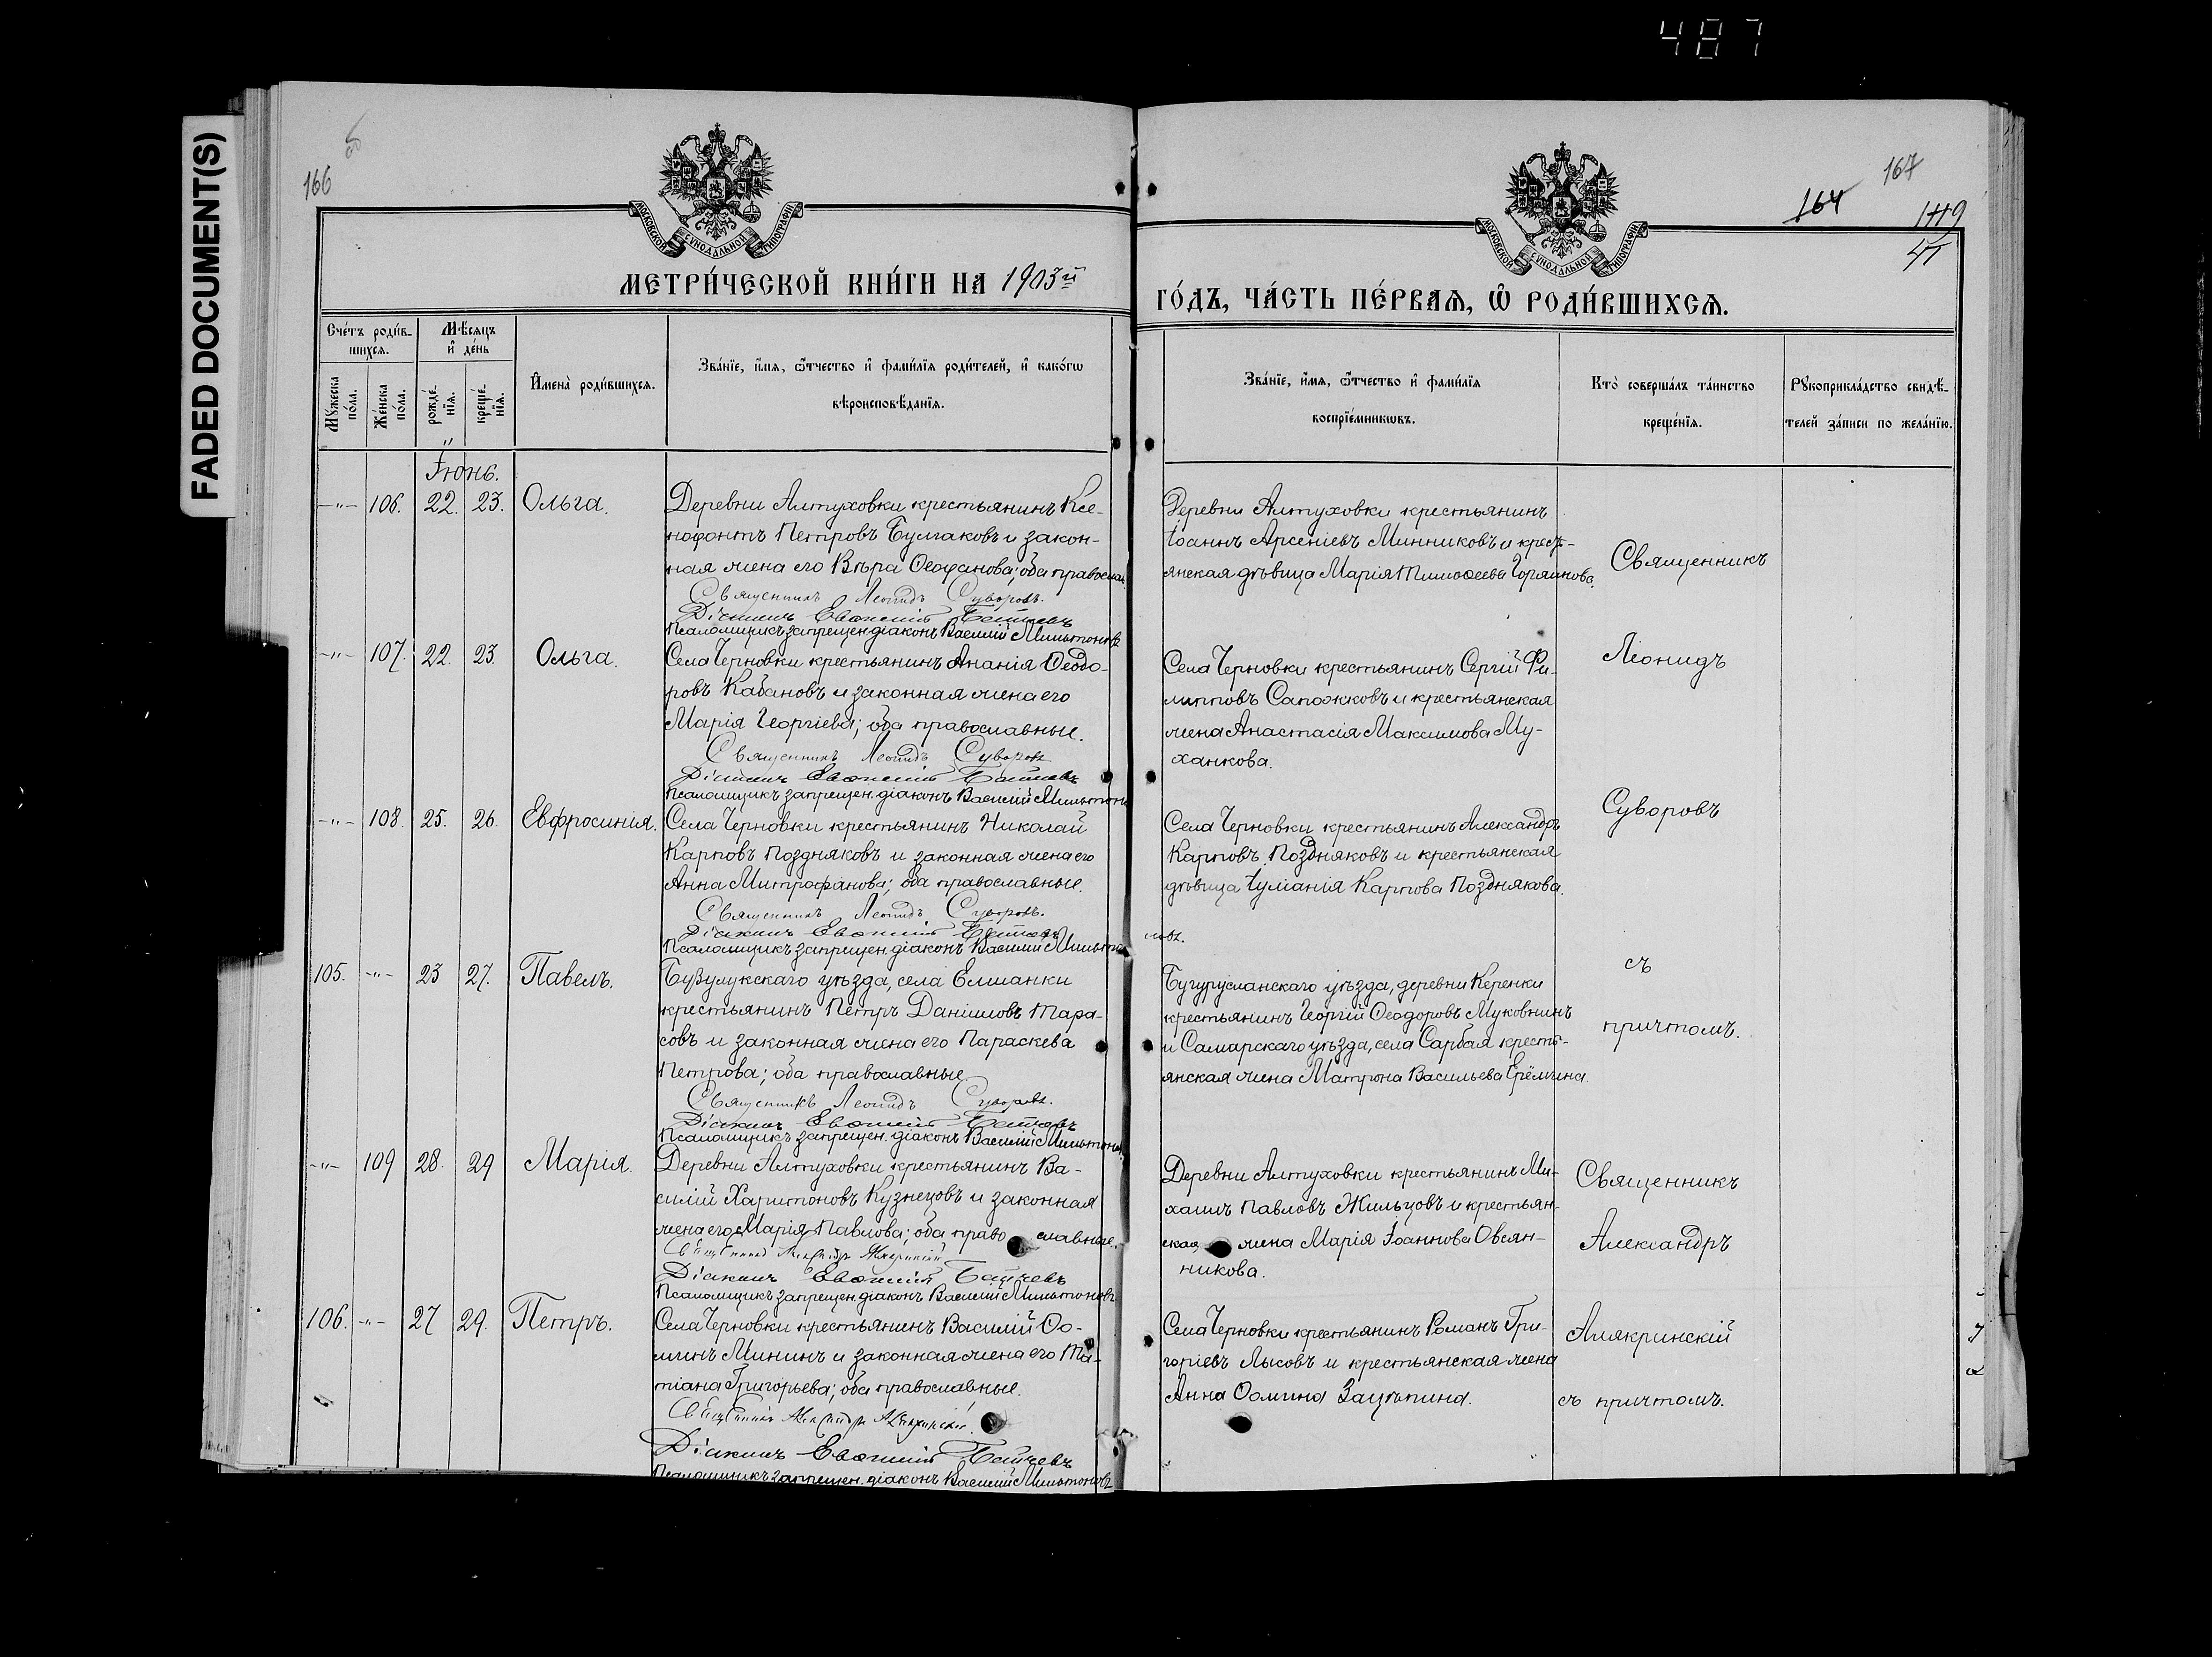 487
FADED DOCUMENT(S)
166
167
164
149
МОСКОВСКОЙ СѴНОДАЛЬНОЙ ТИПОГРАФІИ
МОСКОВСКОЙ СѴНОДАЛЬНОЙ ТИПОГРАФІИ
МЕТРИ́ЧЕСКОЙ КНИ́ГИ НА 1903й
ГО́ДЪ, ЧА́СТЬ ПЕ́РВАѦ, Ѡ҆ РОДИ́ВШИХСѦ.
Сче́тъ роди́в-
шихсѧ.
Мѣ́сѧцъ
и҆ де́нь
Мꙋ́жеска
по́ла.
Же́нска
по́ла.
рожде́-
нїѧ.
креще́-
нїѧ.
И҆мена̀ роди́вшихсѧ.
Зва́нїе, и҆́мѧ, ѻ҆́тчество и҆ фами́лїѧ роди́телей, и҆ како́гѡ
вѣроисповѣ́данїѧ.
Зва́нїе, и҆́мѧ, ѻ҆́тчество и҆ фами́лїѧ
воспрїе́мникѡвъ.
Кто̀ соверша́лъ та́инство
креще́нїѧ.
Рꙋкоприкла́дство свидѣ́-
телей за́писи по жела́нїю.
Іюнь.
-"- 106. 22. 23. Ольга.
Деревни Алтуховки крестьянинъ Ксе-
нофонтъ Петровъ Булгаковъ и закон-
ная жена его Вѣра Ѳеофанова; оба православ.
Священникъ Леонидъ Суворовъ.
Діаконъ Евѳимій
Псаломщикъ запрещен. діаконъ Василій Мильтоновъ
Деревни Алтуховки крестьянинъ
Іоаннъ Арсеніевъ Минниковъ и кресть-
янская дѣвица Марія Тимоѳеева Горяинова.
Священникъ
-"- 107. 22. 23. Ольга.
Села Черновки крестьянинъ Ананія Ѳеодо-
ровъ Кабановъ и законная жена его
Марія Георгіева; оба православные.
Священникъ Леонидъ Суворовъ
Діаконъ Евѳимій
Псаломщикъ запрещен. діаконъ Василій Мильтонов
Села Черновки крестьянинъ Сергій Фи-
липповъ Сапожковъ и крестьянская
жена Анастасія Максимова Му-
ханкова.
Леонидъ
-"- 108. 25. 26. Евфросинія.
Села Черновки крестьянинъ Николай
Карповъ Поздняковъ и законная жена его
Анна Митрофанова; оба православные.
Священникъ Леонидъ Суворовъ.
Діаконъ Евѳимій
Псаломщикъ запрещен. діаконъ Василій Мильтоновъ.
Села Черновки крестьянинъ Александръ
Карповъ Поздняковъ и крестьянская
дѣвица Іуліанія Карпова Позднякова.
Суворовъ
105. -"- 23 27. Павелъ.
Бузулукскаго уѣзда, села Елшанки
крестьянинъ Петръ Даніиловъ Тара-
совъ и законная жена его Параскева
Петрова; оба православные.
Священникъ Леонидъ Суворовъ.
Діаконъ Евѳимій
Псаломщикъ запрещен. діаконъ Василій Мильтонов
Бугурусланскаго уѣзда, деревни Керенки
крестьянинъ Георгій Ѳеодоровъ Муковнинъ
и Самарскаго уѣзда, села Сарбая кресть-
янская жена Матрона Васильева Ерёмина.
съ
причтомъ.
-"- 109 28. 29 Марія.
Деревни Алтуховки крестьянинъ Ва-
силій Харитоновъ Кузнецовъ и законная
жена его Марія Павлова; оба православные.
Священникъ Александръ Алякринскій
Діаконъ Евѳимій
Псаломщикъ запрещен. діаконъ Василій Мильтоновъ
Деревни Алтуховки крестьянинъ Ми-
хаилъ Павловъ Жильцовъ и крестьян-
ская жена Марія Іоаннова Овсян-
никова.
Священникъ
Александръ
106. -"- 27 29. Петръ.
Села Черновки крестьянинъ Василій Ѳо-
минъ Мининъ и законная жена его Та-
тіана Григорьева; оба православные.
Священникъ Александръ Алякринскій.
Діаконъ Евѳимій
Псаломщикъ запрещен. діаконъ Василій Мильтоновъ
Села Черновки крестьянинъ Романъ Гри-
горіевъ Лысовъ и крестьянская жена
Анна Ѳомина Зацѣпина.
Алякринскій
съ причтомъ.